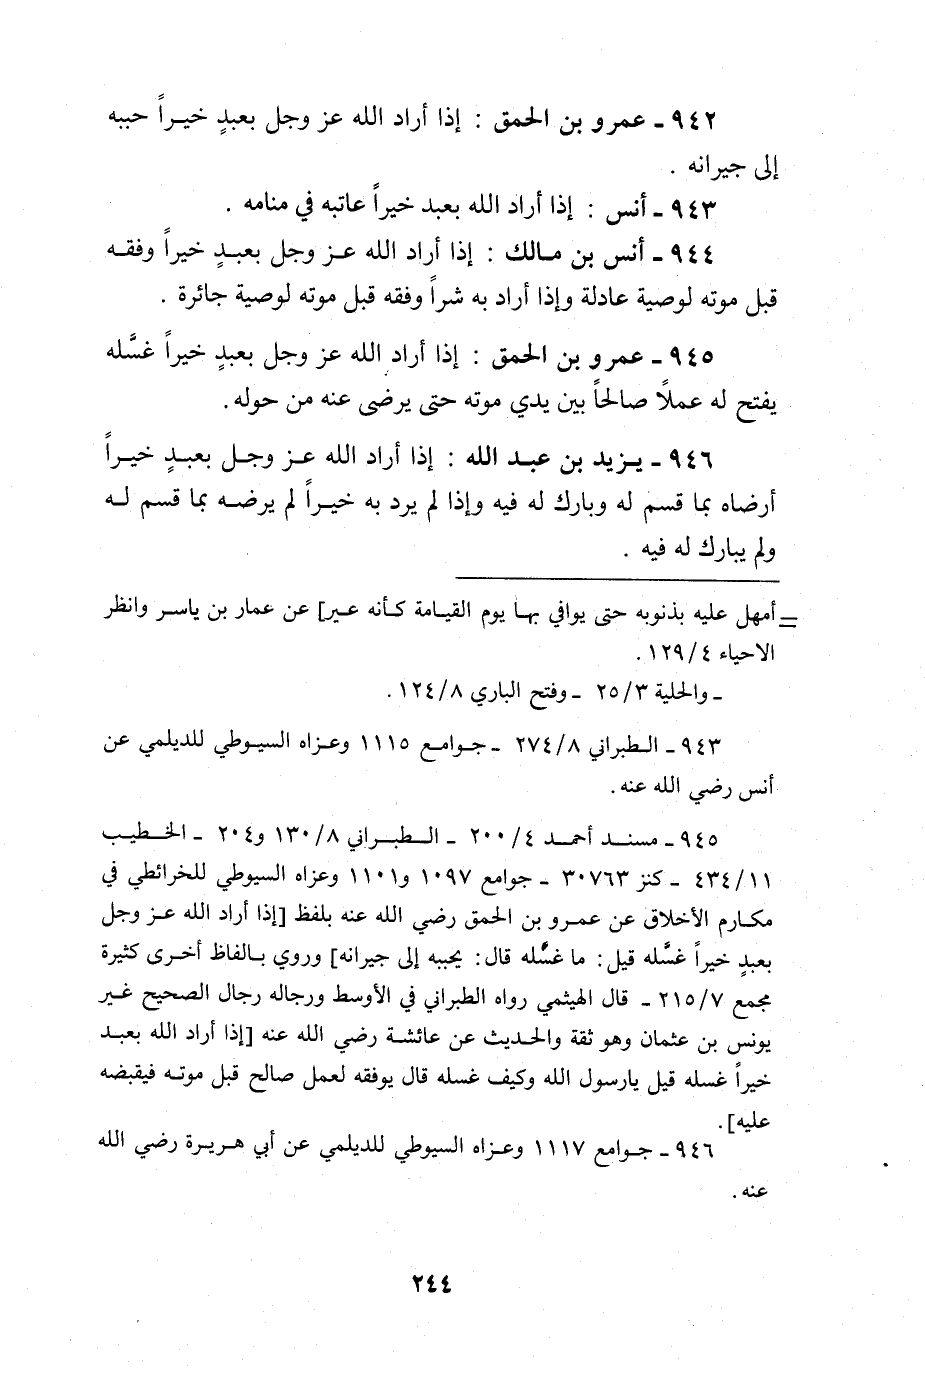 ٩٤٢ - عمرو بن الحمق : إذا أراد الله عز وجل بعبدٍ خيراً حببه
إلى جيرانه .
٩٤٣ - أنس : إذا أراد الله بعبد خيراً عاتبه في منامه .
٩٤٤ - أنس بن مالك : إذا أراد الله عز وجل بعبدٍ خيراً وفقه
قبل موته لوصية عادلة وإذا أراد به شراً وفقه قبل موته لوصية جائرة .
٩٤٥ - عمرو بن الحمق : إذا أراد الله عز وجل بعبدٍ خيراً غسَّله
يفتح له عملاً صالحاً بين يدي موته حتى يرضى عنه من حوله.
٩٤٦ - يزيد بن عبد الله : إذا أراد الله عز وجل بعبدٍ خيراً
أرضاه بما قسم له وبارك له فيه وإذا لم يرد به خيراً لم يرضه بما قسم له
ولم يبارك له فيه .
= أمهل عليه بذنوبه حتى يوافي بها يوم القيامة كأنه عير] عن عمار بن ياسر وانظر
الاحياء ١٢٩/٤ .
- والحلية ٢٥/٣ - وفتح الباري ١٢٤/٨ .
٩٤٣ - الطبراني ٢٧٤/٨ - جوامع ١١١٥ وعزاه السيوطي للديلمي عن
أنس رضي الله عنه .
٩٤٥ - مسند أحمد ٢٠٠/٤ - الطبراني ١٣٠/٨ و٢٠٤ - الخطيب
٤٣٤/١١ - كنز ٣٠٧٦٣ - جوامع ١٠٩٧ و١١٠١ وعزاه السيوطي للخرائطي في
مكارم الأخلاق عن عمرو بن الحمق رضي الله عنه بلفظ [إذا أراد الله عز وجل
بعبدٍ خيراً غسَّله قيل : ما غسَّله قال : يحببه إلى جيرانه] وروي بالفاظ أخرى كثيرة
مجمع ٢١٥/٧ - قال الهيثمي رواه الطبراني في الأوسط ورجاله رجال الصحيح غير
يونس بن عثمان وهو ثقة والحديث عن عائشة رضي الله عنه [إذا أراد الله بعبد
خيراً غسله قيل يارسول الله وكيف غسله قال يوفقه لعمل صالح قبل موته فيقبضه
عليه] .
٩٤٦ - جوامع ١١١٧ وعزاه السيوطي للديلمي عن أبي هريرة رضي الله
عنه .
٢٤٤